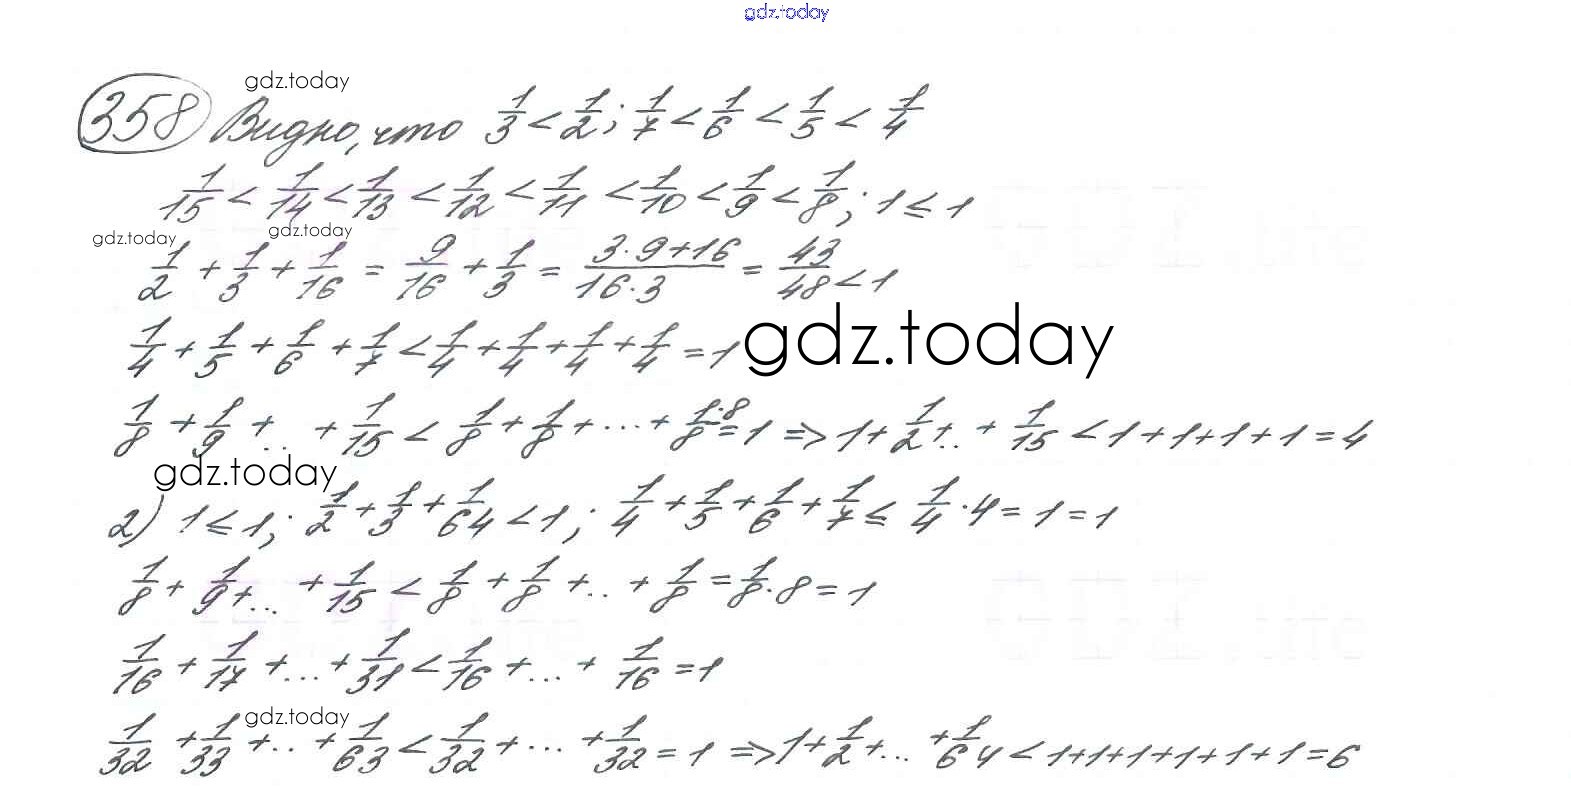 gdz.today
gdz.today
358 Видно, что 1/3 < 1/2; 1/7 < 1/6 < 1/5 < 1/4
1/15 < 1/14 < 1/13 < 1/12 < 1/11 < 1/10 < 1/9 < 1/8; 1 ≤ 1
gdz.today gdz.today
1/2 + 1/3 + 1/16 = 9/16 + 1/3 = (3·9+16)/(16·3) = 43/48 < 1
1/4 + 1/5 + 1/6 + 1/7 < 1/4 + 1/4 + 1/4 + 1/4 = 1 gdz.today
1/8 + 1/9 + .. + 1/15 < 1/8 + 1/8 + ... + 1·8/8 = 1 => 1 + 1/2 + .. + 1/15 < 1+1+1+1 = 4
gdz.today
2) 1 ≤ 1; 1/2 + 1/3 + 1/64 < 1; 1/4 + 1/5 + 1/6 + 1/7 ≤ 1/4 · 4 = 1 = 1
1/8 + 1/9 + ... + 1/15 < 1/8 + 1/8 + .. + 1/8 = 1/8 · 8 = 1
1/16 + 1/17 + ... + 1/31 < 1/16 + ... + 1/16 = 1
gdz.today
1/32 + 1/33 + .. + 1/63 < 1/32 + ... + 1/32 = 1 => 1 + 1/2 + ... + 1/64 < 1+1+1+1+1+1 = 6